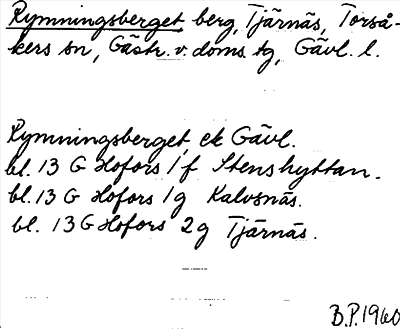 Rymningsberget, berg, Tjärnäs, Torså-
kers sn, Gästr. v. doms. tg, Gävl. l.
Rymningsberget, ek Gävl.
bl. 13 G Hofors 1 f Stenshyttan.
bl. 13 G Hofors 1g Kalvsnäs.
bl. 13 G Hofors 2g Tjärnäs.
B.P. 1960